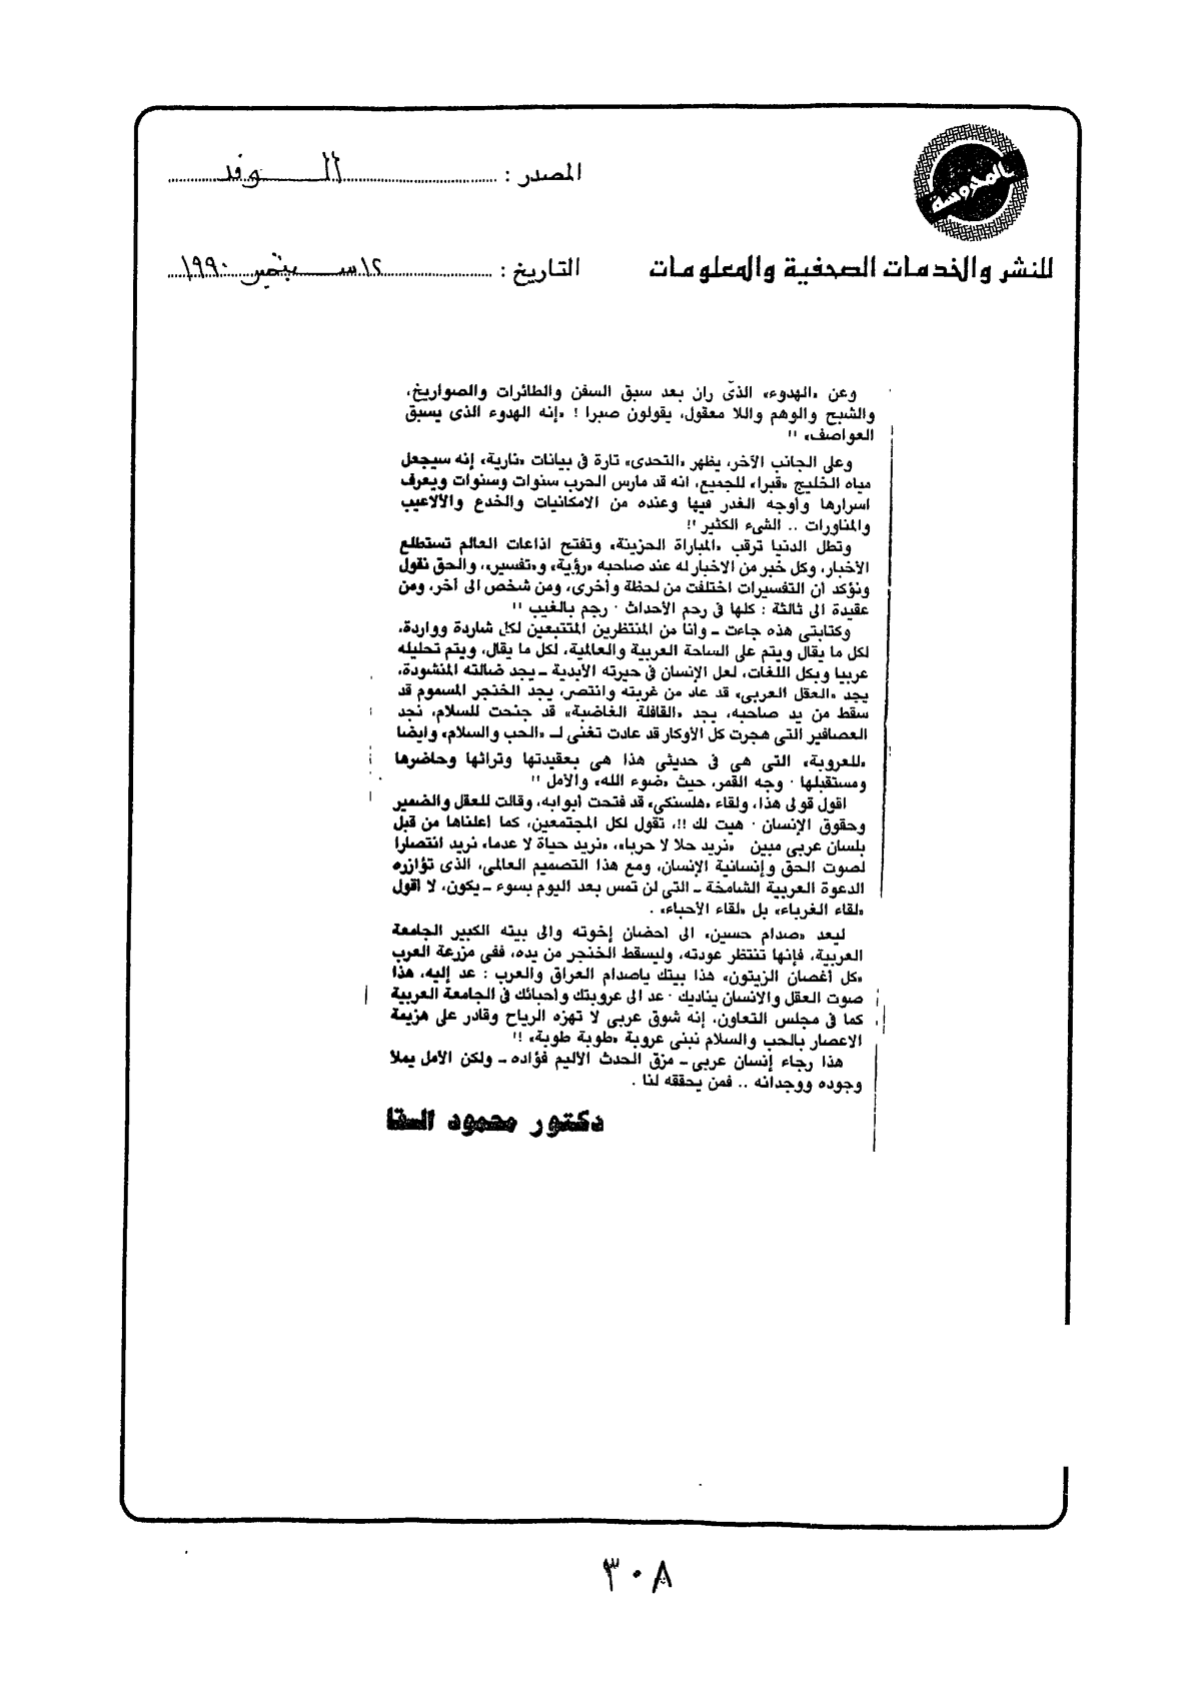 المحروسة
المصدر : الوفد
للنشر والخدمات الصحفية والمعلومات
التاريخ : ١٢ سبتمبر ١٩٩٠
وعن «الهدوء» الذى ران بعد سبق السفن والطائرات والصواريخ،
والشبح والوهم واللا معقول، يقولون صبرا ! «إنه الهدوء الذى يسبق
العواصف» !!
وعلى الجانب الآخر، يظهر «التحدى» تارة فى بيانات «نارية» إنه سيجعل
مياه الخليج «قبرا» للجميع، انه قد مارس الحرب سنوات وسنوات ويعرف
اسرارها وأوجه الغدر فيها وعنده من الامكانيات والخدع والألاعيب
والمناورات .. الشىء الكثير !!
وتظل الدنيا ترقب «المباراة الحزينة» وتفتح اذاعات العالم تستطلع
الأخبار، وكل خبر من الاخبار له عند صاحبه «رؤية» و«تفسير»، والحق نقول
ونؤكد أن التفسيرات اختلفت من لحظة وأخرى، ومن شخص الى آخر، ومن
عقيدة الى ثالثة : كلها فى رحم الأحداث · رجم بالغيب !!
وكتابتى هذه جاءت ــ وأنا من المنتظرين المتتبعين لكل شاردة وواردة،
لكل ما يقال ويتم على الساحة العربية والعالمية، لكل ما يقال، ويتم تحليله
عربيا وبكل اللغات، لعل الإنسان فى حيرته الأبدية ــ يجد ضالته المنشودة،
يجد «العقل العربى» قد عاد من غربته وانتصر، يجد الخنجر المسموم قد
سقط من يد صاحبه، يجد «القافلة الغاضبة» قد جنحت للسلام، نجد
العصافير التى هجرت كل الأوكار قد عادت تغنى لــ «الحب والسلام» وايضا
«للعروبة» التى هى فى حديثى هذا هى بعقيدتها وتراثها وحاضرها
ومستقبلها · وجه القمر، حيث «ضوء الله» والأمل !!
اقول قولى هذا، ولقاء «هلسنكى» قد فتحت أبوابه، وقالت للعقل والضمير
وحقوق الإنسان · هيت لك !!، تقول لكل المجتمعين، كما اعلناها من قبل
بلسان عربى مبين «نريد حلا لا حربا»، «نريد حياة لا عدما» نريد انتصارا
لصوت الحق وإنسانية الإنسان، ومع هذا التصميم العالمى، الذى تؤازره
الدعوة العربية الشامخة ــ التى لن تمس بعد اليوم بسوء ــ يكون، لا اقول
«لقاء الغرباء» بل «لقاء الأحباء» .
ليعد «صدام حسين» الى احضان إخوته والى بيته الكبير الجامعة
العربية، فإنها تنتظر عودته، وليسقط الخنجر من يده، ففى مزرعة العرب
«كل أغصان الزيتون» هذا بيتك ياصدام العراق والعرب : عد إليه، هذا
صوت العقل والانسان يناديك · عد الى عروبتك وأحبائك فى الجامعة العربية
كما فى مجلس التعاون، إنه شوق عربى لا تهزه الرياح وقادر على هزيمة
الاعصار بالحب والسلام نبنى عروبة «طوبة طوبة» !!
هذا رجاء إنسان عربى ــ مزق الحدث الأليم فؤاده ــ ولكن الأمل يملا
وجوده ووجدانه .. فمن يحققه لنا .
دكتور محمود السقا
٣٠٨